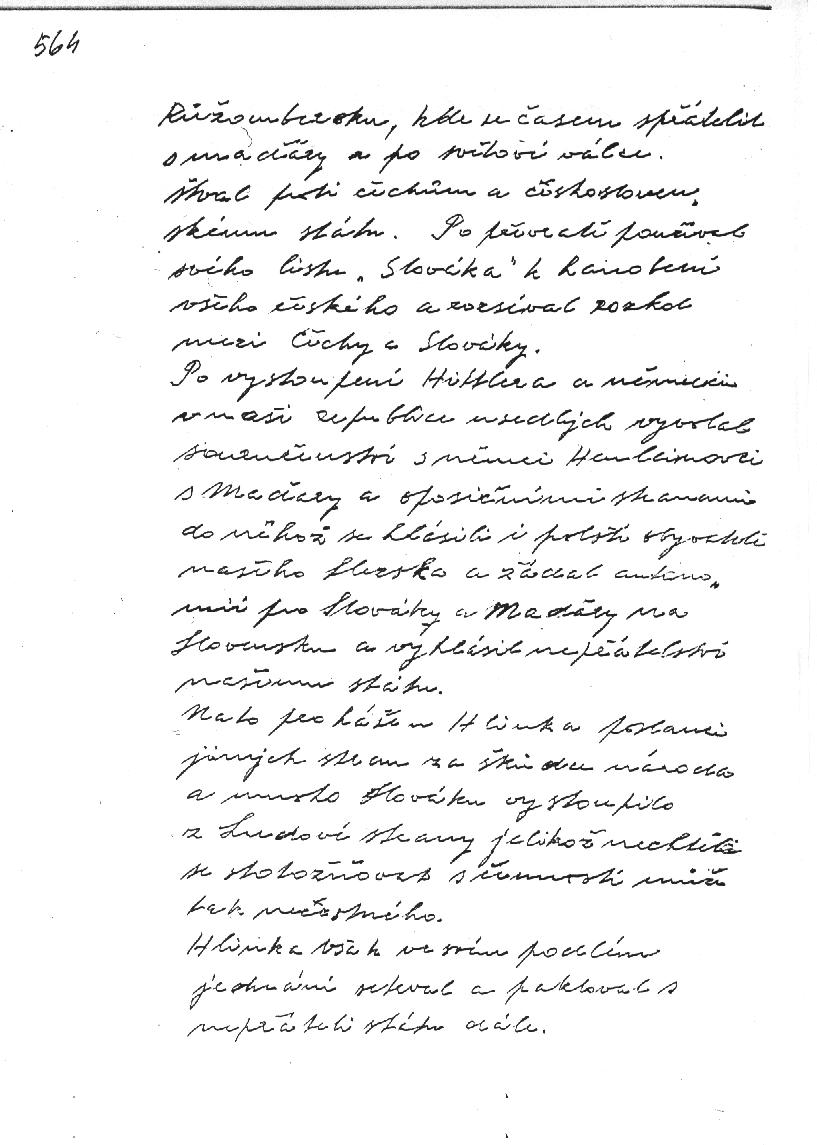 564
Růžomberoku, kde se časem spřátelil
s maďáry a po světové válce.
štval proti čechům a českosloven„
skému státu. Po převratě používal
svého listu „Slováka" k hanobení
všeho českého a rozsíval rozkol
mezi Čechy a Slováky.
Po vystoupení Hittlera a německa
v naší republice usedlých vyvolal
souručenství s němci Henleinovci
s Maďary a oposičními stranami
do něhož se hlásili i polští obyvatelé
našeho Slezska a žádal autono„
mii pro Slováky a Maďáry na
Slovensku a vyhlásil nepřátelství
našemu státu.
Nato prohášen Hlinka poslanci
jiných stran za škůdce národa
a mnoho Slováku vystoupilo
z Ludové strany jelikož nechtěli
se stotožňovat s činností muže
tak nečestného.
Hlinka však ve svém podlém
jednání setrval a paktoval s
nepřáteli státu dále.